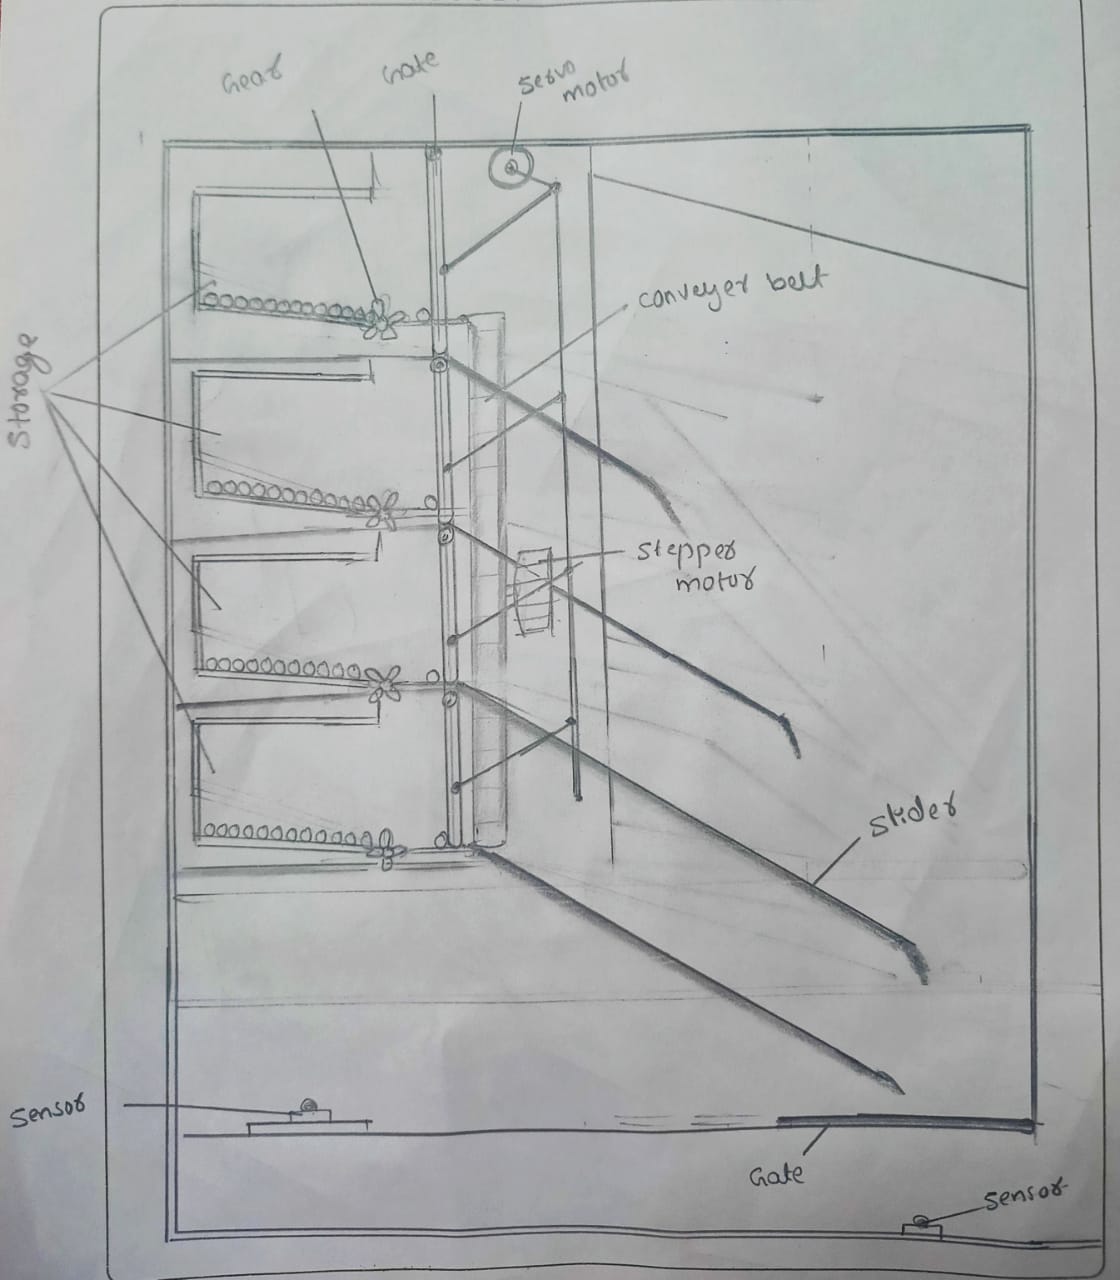 Gear
Gate
Servo
motor
conveyer belt
Storage
Stepper
motor
Slider
Sensor
Gate
Sensor